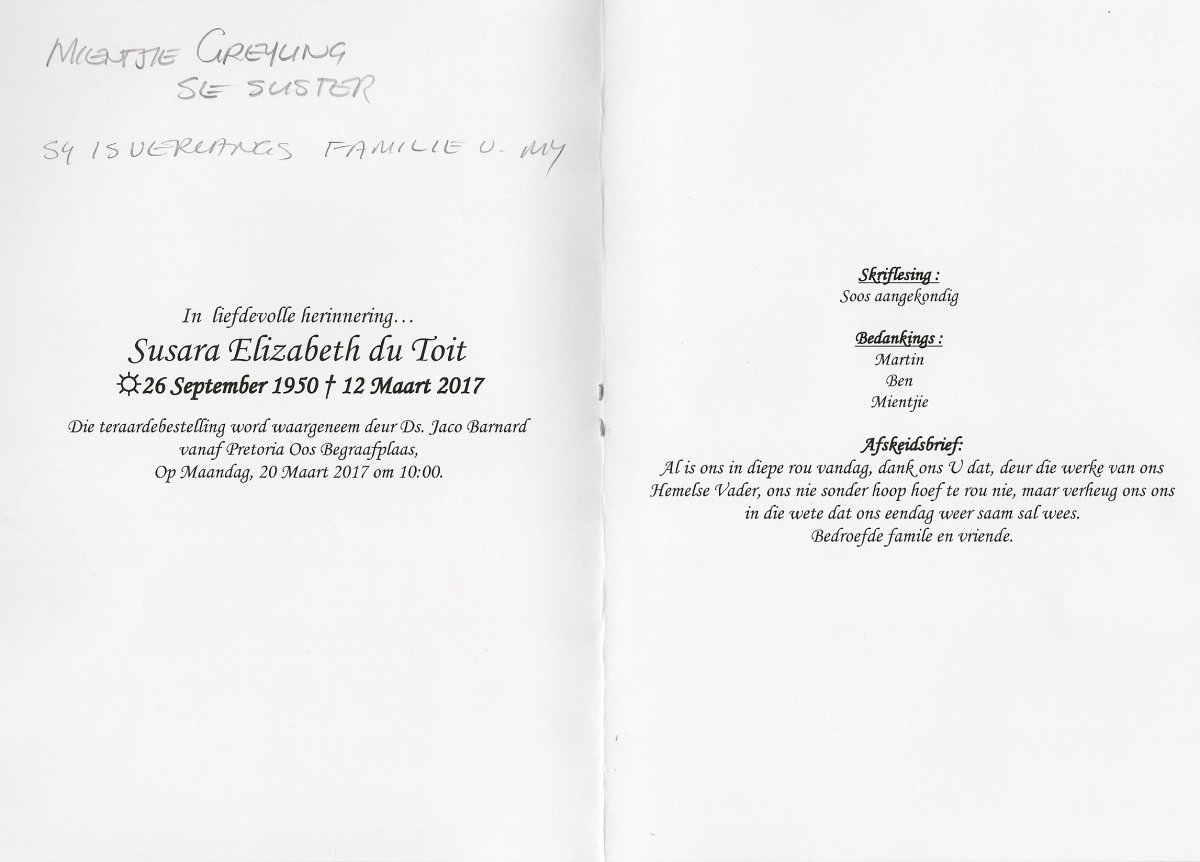 MIENTJIE GREYLING
SE SUSTER
SY IS VERLANGS FAMILIE V. MY
In liefdevolle herinnering…
Susara Elizabeth du Toit
☼26 September 1950 † 12 Maart 2017
Die teraardebestelling word waargeneem deur Ds. Jaco Barnard
vanaf Pretoria Oos Begraafplaas,
Op Maandag, 20 Maart 2017 om 10:00.
Skriflesing :
Soos aangekondig
Bedankings :
Martin
Ben
Mientjie
Afskeidsbrief:
Al is ons in diepe rou vandag, dank ons U dat, deur die werke van ons
Hemelse Vader, ons nie sonder hoop hoef te rou nie, maar verheug ons ons
in die wete dat ons eendag weer saam sal wees.
Bedroefde famile en vriende.